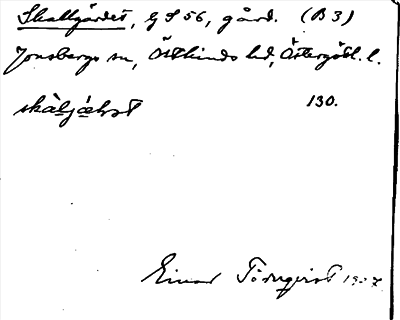 Skallgärdet, G S 56, gård. (B 3)
Jonsbergs sn, Östkinds hd, Östergötl. l.
130.
Einar Törnqvist 1927